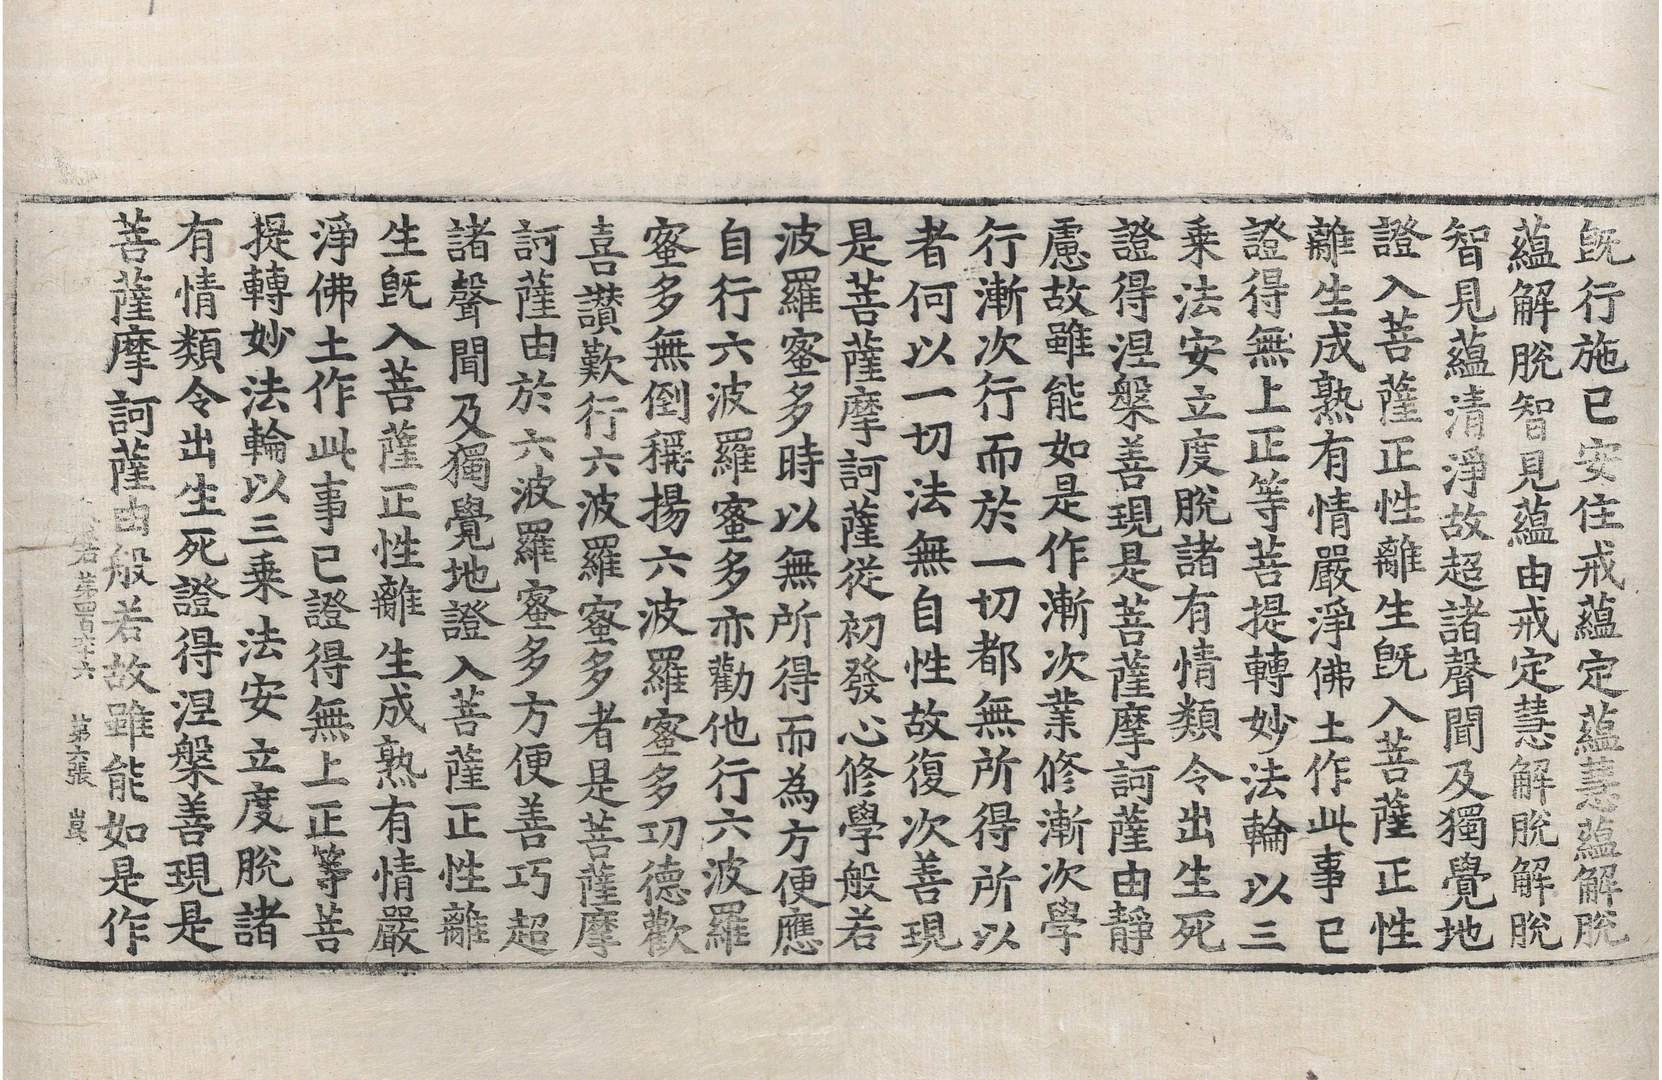 既行施已安住戒蘊定蘊慧蘊解脫
蘊解脫智見蘊由戒定慧解脫解脫
智見蘊清淨故超諸聲聞及獨覺地
證入菩薩正性離生既入菩薩正性
離生成熟有情嚴淨佛土作此事已
證得無上正等菩提轉妙法輪以三
乗法安立度脫諸有情類令出生死
證得涅槃善現是菩薩摩訶薩由靜
慮故雖能如是作漸次業修漸次學
行漸次行而於一切都無所得所以
者何以一切法無自性故復次善現
是菩薩摩訶薩從初發心修學般若
波羅蜜多時以無所得而為方便應
自行六波羅蜜多亦勸他行六波羅
蜜多無倒稱揚六波羅蜜多功德歡
喜讚歎行六波羅蜜多者是菩薩摩
訶薩由於六波羅蜜多方便善巧超
諸聲聞及獨覺地證入菩薩正性離
生既入菩薩正性離生成熟有情嚴
淨佛土作此事已證得無上正等菩
提轉妙法輪以三乗法安立度脫諸
有情類令出生死證得涅槃善現是
菩薩摩訶薩由般若故雖能如是作
若第四百六十六 第六張 崑